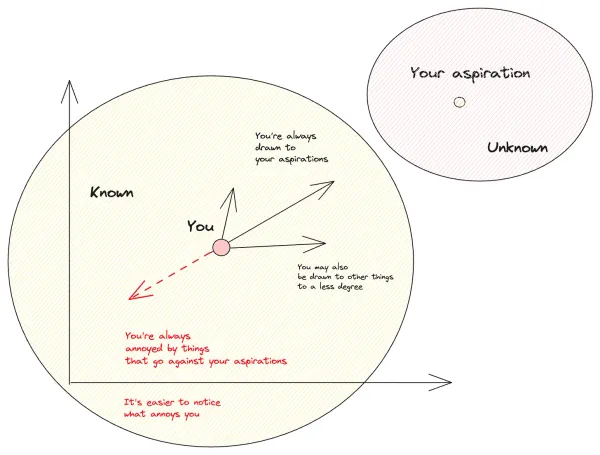 Your aspiration
Unknown
You're always
drawn to
your aspirations
Known
You
You may also
be drawn to other things
to a less degree
You're always
annoyed by things
that go against your aspirations
It's easier to notice
what annoys you